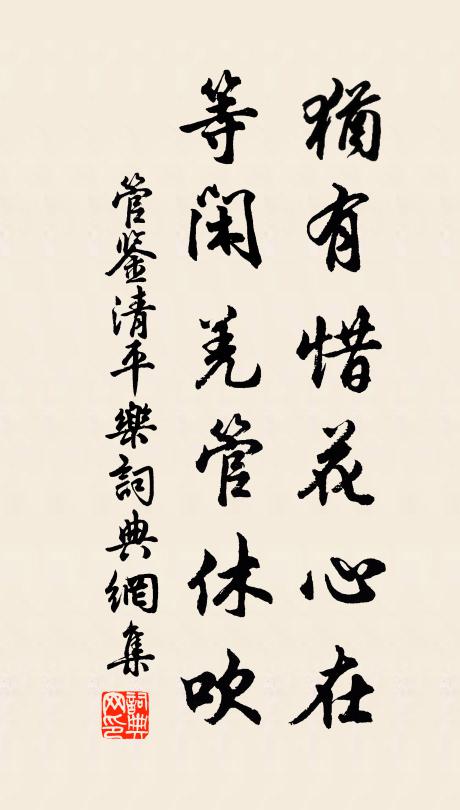 猶有惜花心在
等閑羌管休吹
管鉴清平樂詞典網集
詞典
网印